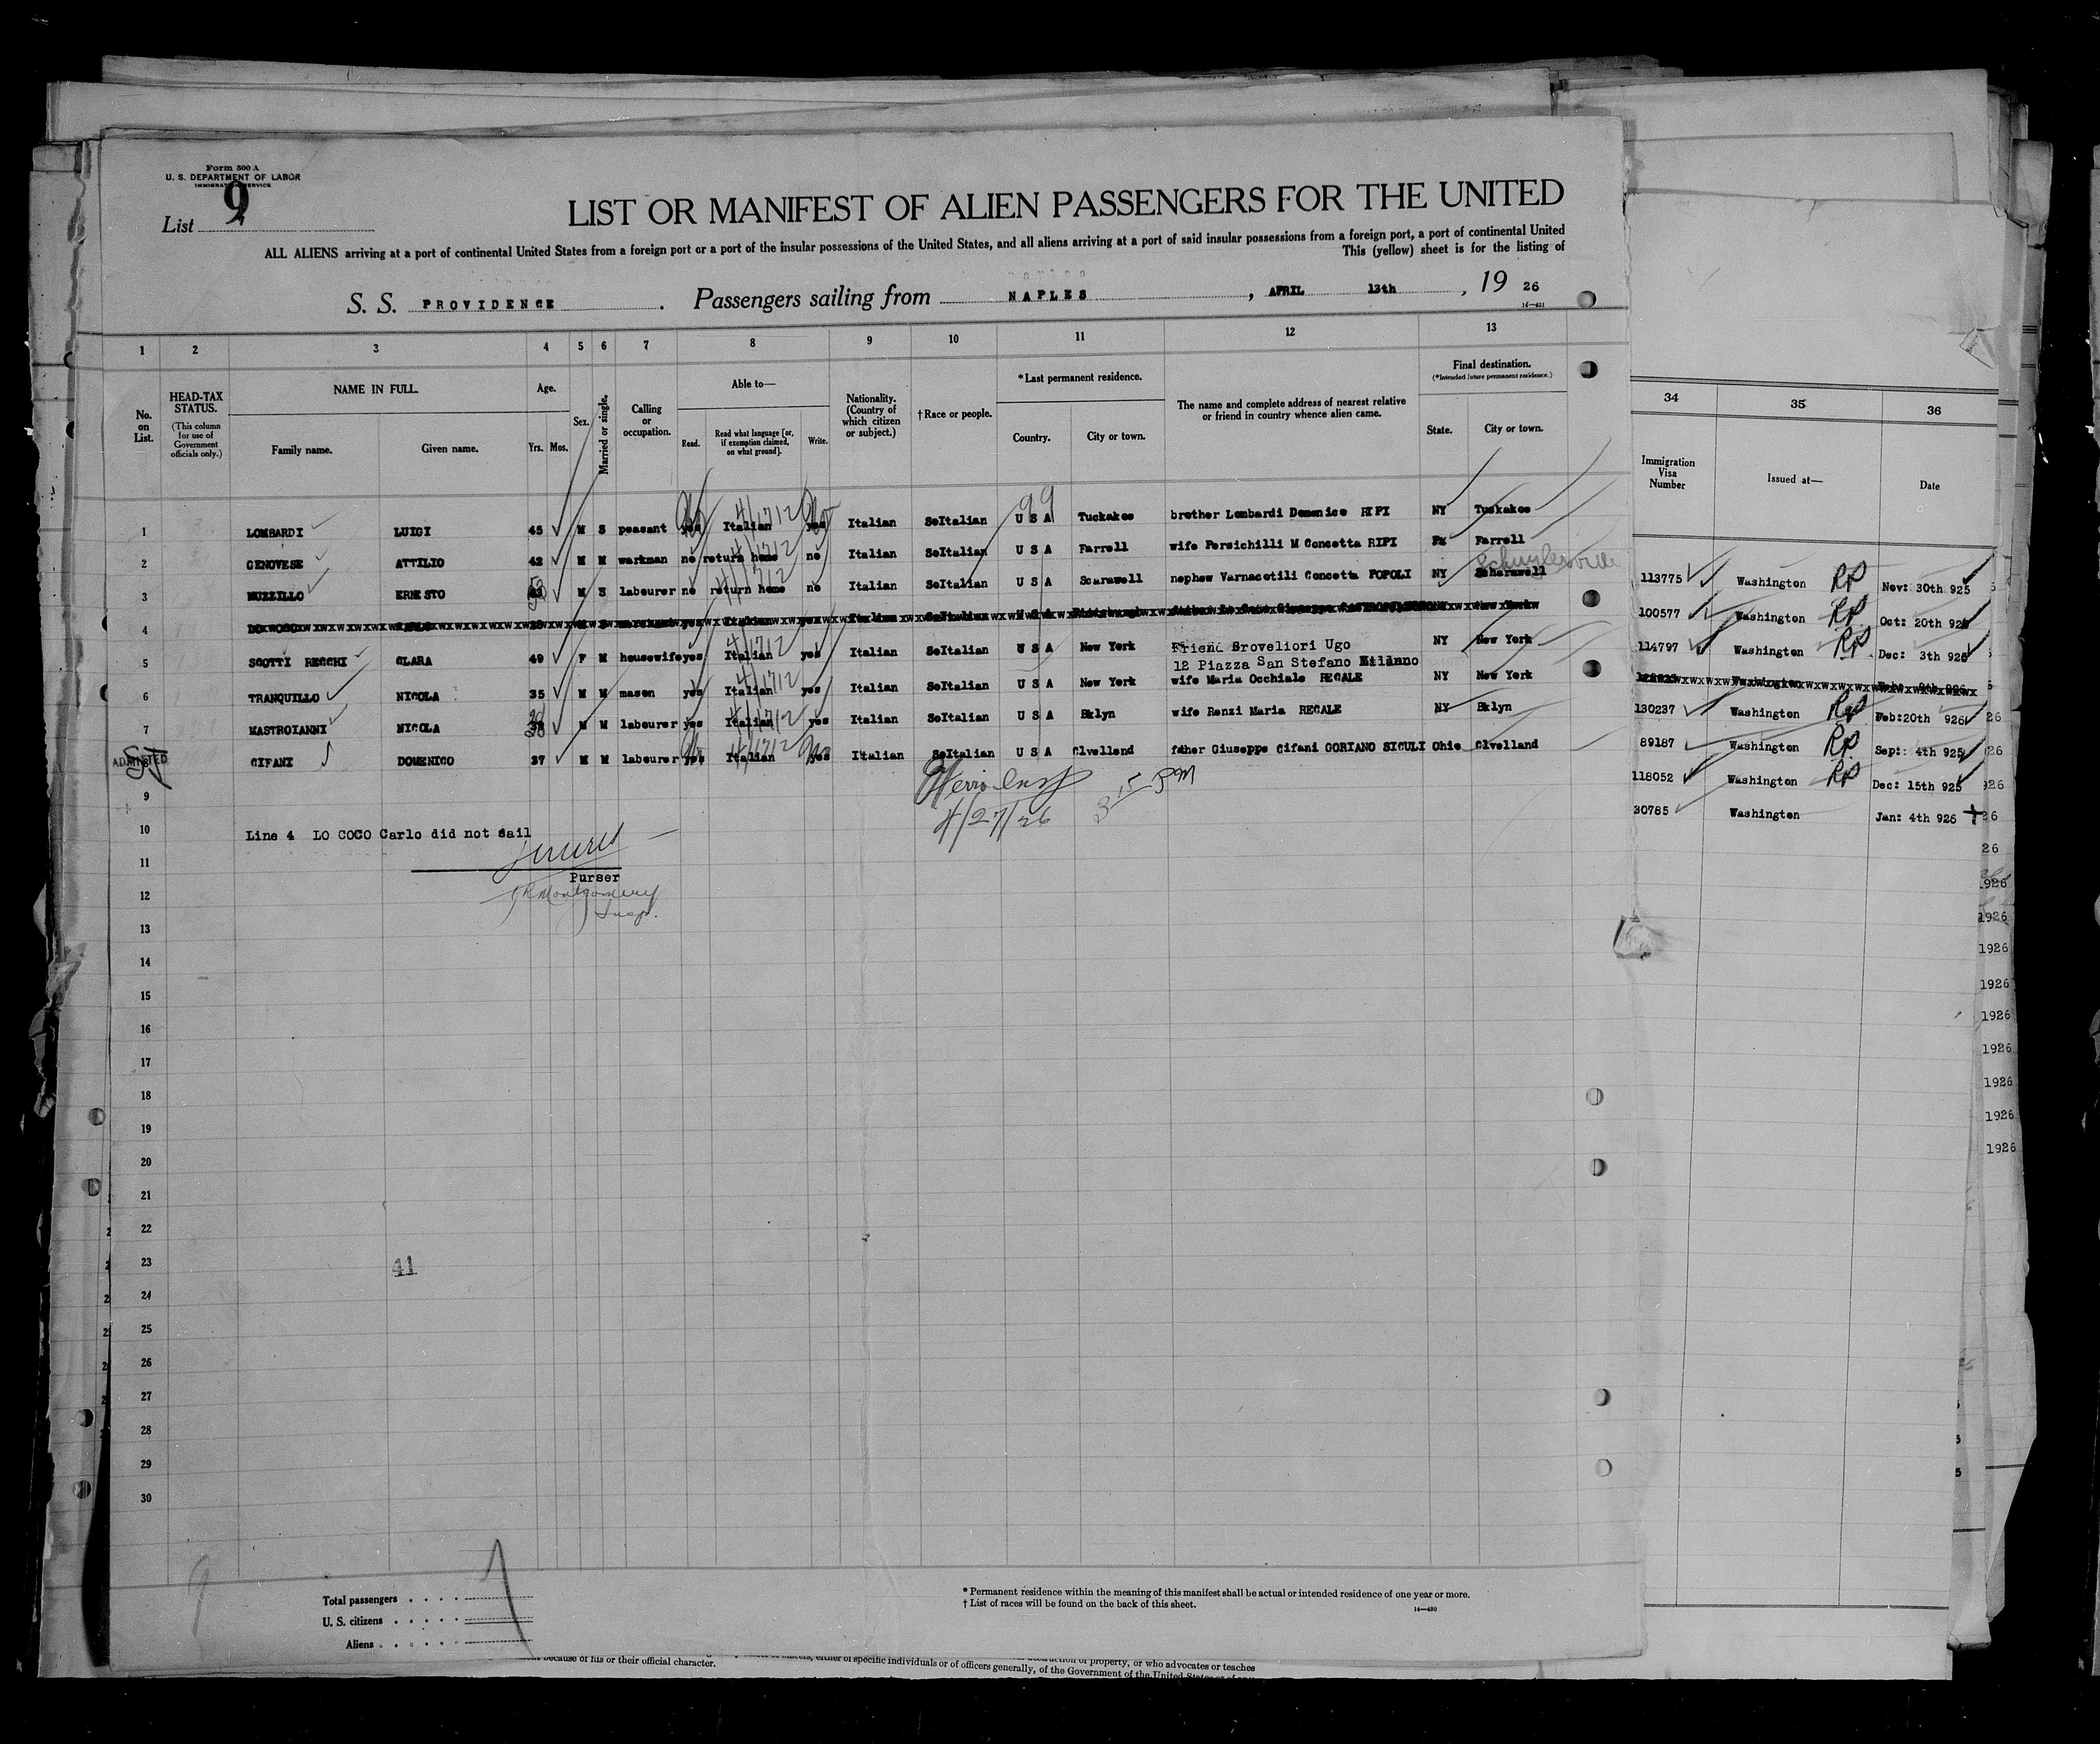 Form 500 A
U. S. DEPARTMENT OF LABOR
IMMIGRATION SERVICE
List 9
LIST OR MANIFEST OF ALIEN PASSENGERS FOR THE UNITED
ALL ALIENS arriving at a port of continental United States from a foreign port or a port of the insular possessions of the United States, and all aliens arriving at a port of said insular possessions from a foreign port, a port of continental United
This (yellow) sheet is for the listing of
S. S. PROVIDENCE. Passengers sailing from NAPLES, APRIL 13th, 19 26
1 2 3 4 5 6 7 8 9 10 11 12 13
No. on List.
HEAD-TAX STATUS.
(This column for use of Government officials only.)
NAME IN FULL.
Family name. Given name.
Age.
Yrs. Mos.
Sex.
Married or single.
Calling or occupation.
Able to—
Read. Read what language [or, if exemption claimed, on what ground]. Write.
Nationality. (Country of which citizen or subject.)
† Race or people.
*Last permanent residence.
Country. City or town.
The name and complete address of nearest relative or friend in country whence alien came.
Final destination.
(*Intended future permanent residence.)
State. City or town.
34 35 36
Immigration Visa Number
Issued at—
Date
99
1 LOMBARDI LUIGI 45 M S peasant yes Italian yes Italian SoItalian U S A Tuckakoe brother Lombardi Domenico RIPI NY Tuskakoe
2 GENOVESE ATTILIO 42 M M workman no return home no Italian SoItalian U S A Farrell wife Persichilli M Concetta RIPI Pa Farrell
Schuylerville
3 MUZZILLO ERNESTO M S labourer no return home no Italian SoItalian U S A Scarawell nephew Varnacotili Concetta POPOLI NY Scharawell
4
5 SCOTTI RECCHI CLARA 49 F M housewife yes Italian yes Italian SoItalian U S A New York Friend Broveliori Ugo NY New York
12 Piazza San Stefano Milanno
6 TRANQUILLO NICOLA 35 M M mason yes Italian yes Italian SoItalian U S A New York wife Maria Occhiale REGALE NY New York
7 MASTROIANNI NICOLA 38 M M labourer yes Italian yes Italian SoItalian U S A Bklyn wife Renzi Maria REGALE NY Bklyn
ADMITTED
8 CIFANI DOMENICO 37 M M labourer yes Italian yes Italian SoItalian U S A Clvelland father Giuseppe Cifani GORIANO SICULI Ohio Clvelland
113775 Washington RP Nov: 30th 925
100577 Washington RP Oct: 20th 925
114797 Washington RP Dec: 3th 925
130237 Washington RP Feb:20th 926
89187 Washington RP Sept: 4th 925
118052 Washington RP Dec: 15th 925
30785 Washington Jan: 4th 926
9
4/27/26 3 15 PM
10 Line 4 LO COCO Carlo did not sail
11
Purser
12 Montgomery
Insp.
13
14
15
16
17
18
19
20
21
22
23 41
24
25
26
27
28
29
30
26
1926
1926
1926
1926
1926
1926
1926
1926
1926
Total passengers
U. S. citizens
Aliens
* Permanent residence within the meaning of this manifest shall be actual or intended residence of one year or more.
† List of races will be found on the back of this sheet.
14—430
because of his or their official character.
either of specific individuals or of officers generally, of the Government of the United States
property, or who advocates or teaches